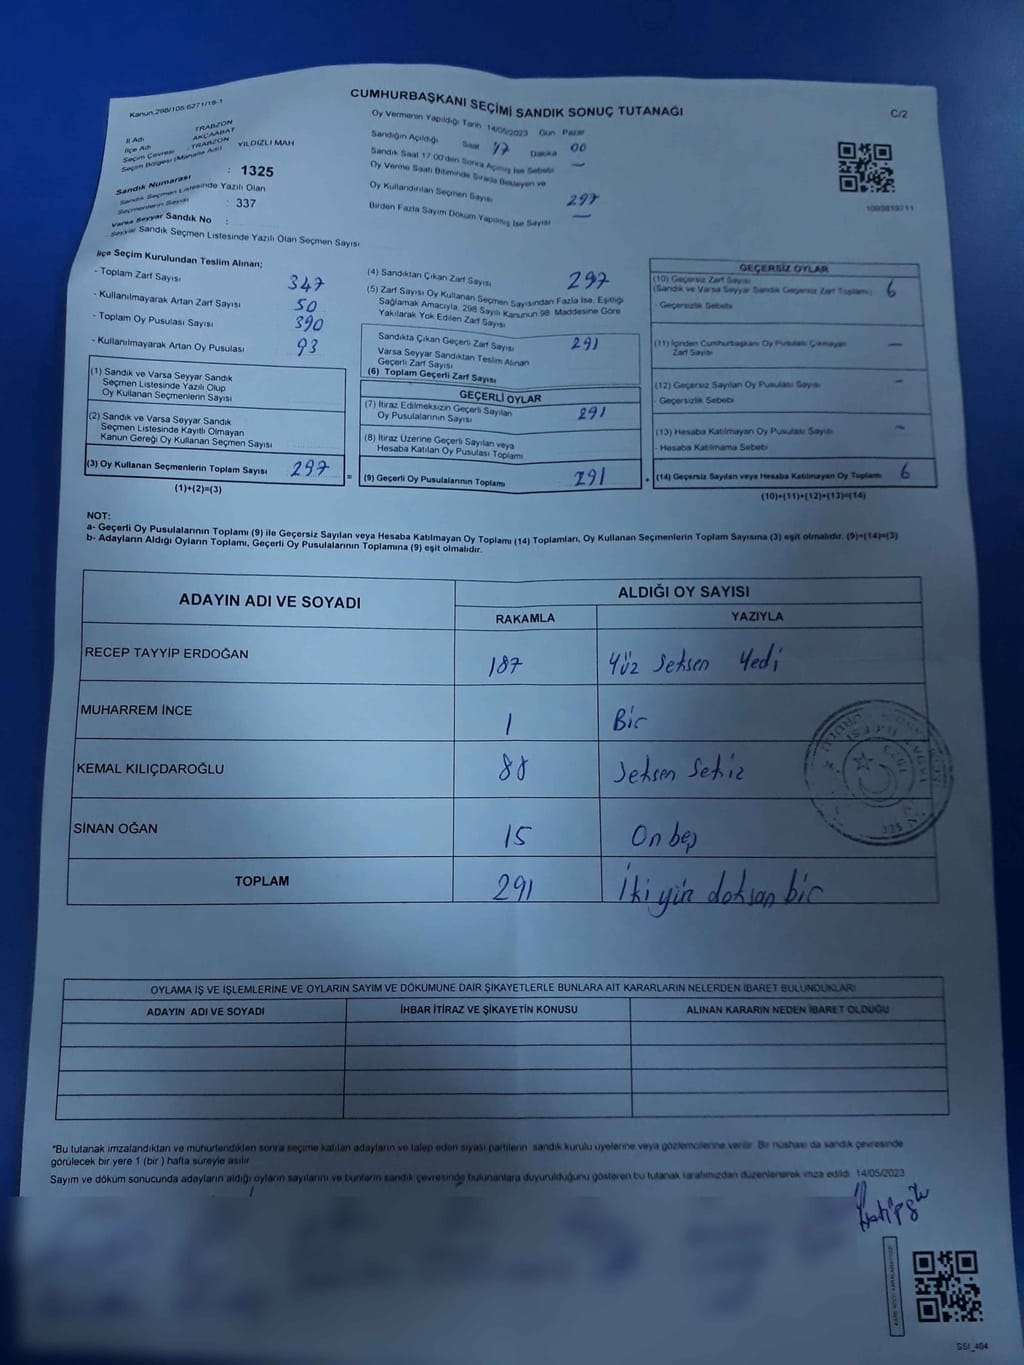 Kanun:298/105.6271/18-1
CUMHURBAŞKANI SEÇİMİ SANDIK SONUÇ TUTANAĞI
C/2
İl Adı : TRABZON
İlçe Adı : AKÇAABAT
Seçim Çevresi : TRABZON
Seçim Bölgesi (Mahalle Adı) : YILDIZLI MAH
Sandık Numarası : 1325
Sandık Seçmen Listesinde Yazılı Olan
Seçmenlerin Sayısı : 337
Varsa Seyyar Sandık No :
Seyyar Sandık Seçmen Listesinde Yazılı Olan Seçmen Sayısı
Oy Vermenin Yapıldığı Tarih 14/05/2023 Gün Pazar
Sandığın Açıldığı Saat 17 Dakika 00
Sandık Saat 17:00'den Sonra Açılmış İse Sebebi —
Oy Verme Saati Bitiminde Sırada Bekleyen ve
Oy Kullandırılan Seçmen Sayısı 297
Birden Fazla Sayım Döküm Yapılmış İse Sayısı —
1093819711
İlçe Seçim Kurulundan Teslim Alınan;
- Toplam Zarf Sayısı 347
- Kullanılmayarak Artan Zarf Sayısı 50
- Toplam Oy Pusulası Sayısı 390
- Kullanılmayarak Artan Oy Pusulası 93
(1) Sandık ve Varsa Seyyar Sandık
Seçmen Listesinde Yazılı Olup
Oy Kullanan Seçmenlerin Sayısı
(2) Sandık ve Varsa Seyyar Sandık
Seçmen Listesinde Kayıtlı Olmayan
Kanun Gereği Oy Kullanan Seçmen Sayısı
(3) Oy Kullanan Seçmenlerin Toplam Sayısı 297
(1)+(2)=(3)
=
(4) Sandıktan Çıkan Zarf Sayısı 297
(5) Zarf Sayısı Oy Kullanan Seçmen Sayısından Fazla İse, Eşitliği
Sağlamak Amacıyla, 298 Sayılı Kanunun 98. Maddesine Göre
Yakılarak Yok Edilen Zarf Sayısı
Sandıkta Çıkan Geçerli Zarf Sayısı 291
Varsa Seyyar Sandıktan Teslim Alınan
Geçerli Zarf Sayısı
(6) Toplam Geçerli Zarf Sayısı
GEÇERLİ OYLAR
(7) İtiraz Edilmeksizin Geçerli Sayılan
Oy Pusulalarının Sayısı 291
(8) İtiraz Üzerine Geçerli Sayılan veya
Hesaba Katılan Oy Pusulası Toplamı
(9) Geçerli Oy Pusulalarının Toplamı 291
+
GEÇERSİZ OYLAR
(10) Geçersiz Zarf Sayısı
(Sandık ve Varsa Seyyar Sandık Geçersiz Zarf Toplamı) 6
- Geçersizlik Sebebi
(11) İçinden Cumhurbaşkanı Oy Pusulası Çıkmayan
Zarf Sayısı —
(12) Geçersiz Sayılan Oy Pusulası Sayısı —
- Geçersizlik Sebebi
(13) Hesaba Katılmayan Oy Pusulası Sayısı —
- Hesaba Katılmama Sebebi
(14) Geçersiz Sayılan veya Hesaba Katılmayan Oy Toplamı 6
(10)+(11)+(12)+(13)=(14)
NOT:
a- Geçerli Oy Pusulalarının Toplamı (9) ile Geçersiz Sayılan veya Hesaba Katılmayan Oy Toplamı (14) Toplamları, Oy Kullanan Seçmenlerin Toplam Sayısına (3) eşit olmalıdır. (9)+(14)=(3)
b- Adayların Aldığı Oyların Toplamı, Geçerli Oy Pusulalarının Toplamına (9) eşit olmalıdır.
ADAYIN ADI VE SOYADI ALDIĞI OY SAYISI
RAKAMLA YAZIYLA
RECEP TAYYİP ERDOĞAN 187 Yüz seksen Yedi
MUHARREM İNCE 1 Bir
KEMAL KILIÇDAROĞLU 88 Seksen Sekiz
SİNAN OĞAN 15 On beş
TOPLAM 291 İki yüz doksan bir
OYLAMA İŞ VE İŞLEMLERİNE VE OYLARIN SAYIM VE DÖKÜMÜNE DAİR ŞİKAYETLERLE BUNLARA AİT KARARLARIN NELERDEN İBARET BULUNDUKLARI
ADAYIN ADI VE SOYADI İHBAR İTİRAZ VE ŞİKAYETİN KONUSU ALINAN KARARIN NEDEN İBARET OLDUĞU
*Bu tutanak imzalandıktan ve mühürlendikten sonra seçime katılan adayların ve talep eden siyasi partilerin sandık kurulu üyelerine veya gözlemcilerine verilir. Bir nüshası da sandık çevresinde
görülecek bir yere 1 (bir ) hafta süreyle asılır.
Sayım ve döküm sonucunda adayların aldığı oyların sayılarını ve bunların sandık çevresinde bulunanlara duyurulduğunu gösteren bu tutanak tarafımızdan düzenlenerek imza edildi. 14/05/2023
SSI_404